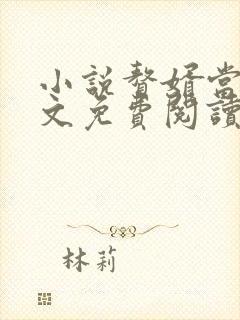 小說贅婿當
文免費閱讀
林莉